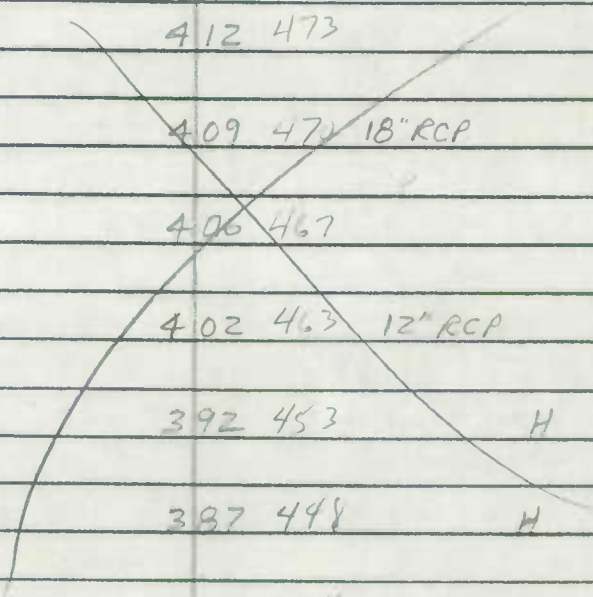 412 473
409 470 18" RCP
406 467
402 463 12" RCP
392 453 H
387 448 H